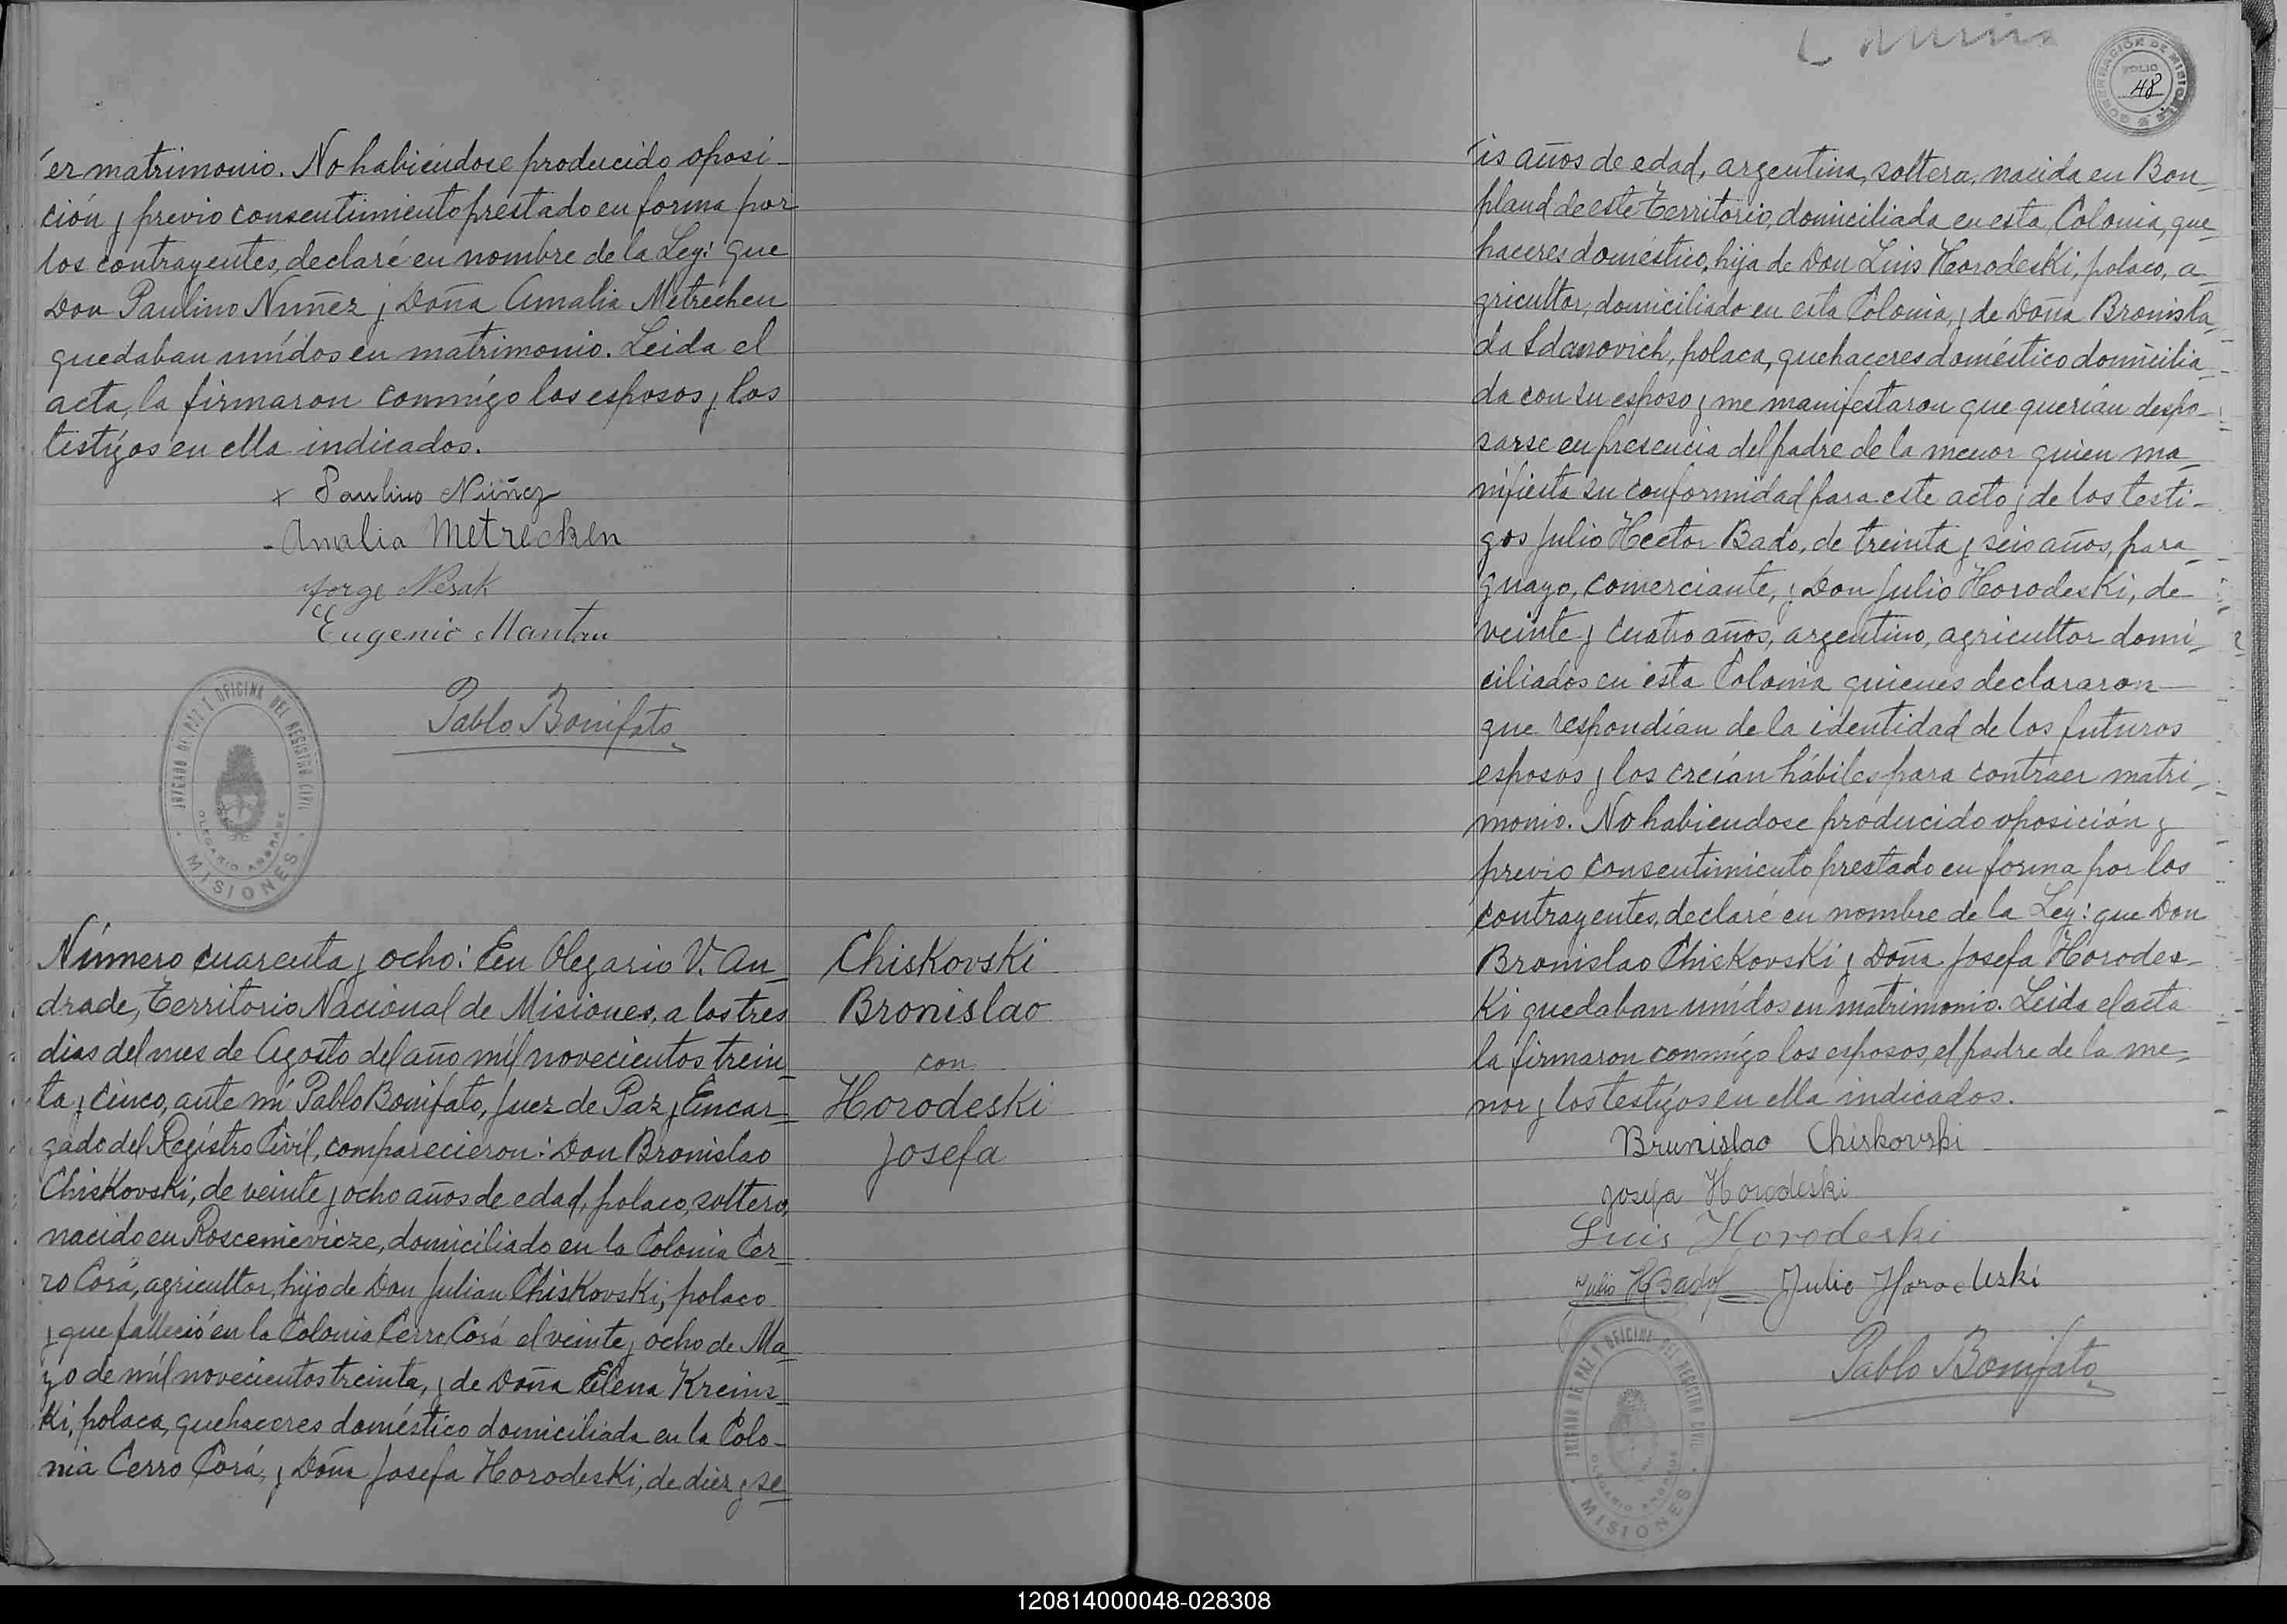 er matrimonio. No habiéndose producido oposi-
ción y previo consentimiento prestado en forma por
los contrayentes, declaré en nombre de la Ley: que
Don Paulino Nuñez y Doña Amalia Metrechen
quedaban unídos en matrimonio. Leida el
acta, la firmaron conmígo los esposos y los
testígos en ella indicados.
x Paulino Núñez
- Amalia Metrechen
Jorge Nesak
Eugenio
Pablo Bonifato
JUZGADO DE PAZ Y OFICINA DEL REGISTRO CIVIL
OLEGARIO ANDRADE
MISIONES
Número cuarenta y ocho: En Olegario V. An-
drade, Territorio Nacional de Misiones, a los tres
dias del mes de Agosto del año mil novecientos trein-
ta y cinco, ante mí Pablo Bonifato, Juez de Paz y Encar-
gado del Registro Civil, comparecieron: Don Bronislao
Chiskovski, de veinte y ocho años de edad, polaco, soltero,
nacido en Roscenievicze, domiciliado en la Colonia Cer-
ro Corá, agricultor, hijo de Don Julian Chiskovski, polaco
y que falleció en la Colonia Cerro Corá el veinte y ocho de Ma-
yo de mil novecientos treinta, y de Doña Elena Kreins-
ki, polaca, quehaceres doméstico domiciliada en la Colo-
nia Cerro Corá, y Doña Josefa Horodeski, de diez y se-
Chiskovski
Bronislao
con
Horodeski
Josefa
GOBERNACIÓN DE MISIONES
FOLIO
48
is años de edad, argentina, soltera, nacida en Bon-
pland de este Territorio, domiciliada en esta Colonia, que-
haceres doméstico, hija de Don Luis Horodeski, polaco, a-
gricultor, domiciliado en esta Colonia, y de Doña Bronisla-
da Sdanovich, polaca, quehaceres doméstico domicilia-
da con su esposo y me manifestaron que querían despo-
sarse en presencia del padre de la menor quien ma-
nifiesta su conformidad para este acto y de los testi-
gos Julio Hector Bado, de treinta y seis años, para-
guayo, comerciante, y Don Julio Horodeski, de
veinte y cuatro años, argentino, agricultor domi-
ciliados en esta Colonia quienes declararon
que respondían de la identidad de los futuros
esposos y los creían hábiles para contraer matri-
monio. No habiendose producido oposición y
previo consentimiento prestado en forma por los
contrayentes, declaré en nombre de la Ley: que Don
Bronislao Chiskovski y Doña Josefa Horodes-
ki quedaban unídos en matrimonio. Leida el acta
la firmaron conmígo los esposos, el padre de la me-
nor y los testígos en ella indicados.
Brunislao Chiskovski
Josefa Horodeski
Luis Horodeski
Julio HBado Julio Horodeski
Pablo Bonifato
JUZGADO DE PAZ Y OFICINA DEL REGISTRO CIVIL
OLEGARIO ANDRADE
MISIONES
120814000048-028308